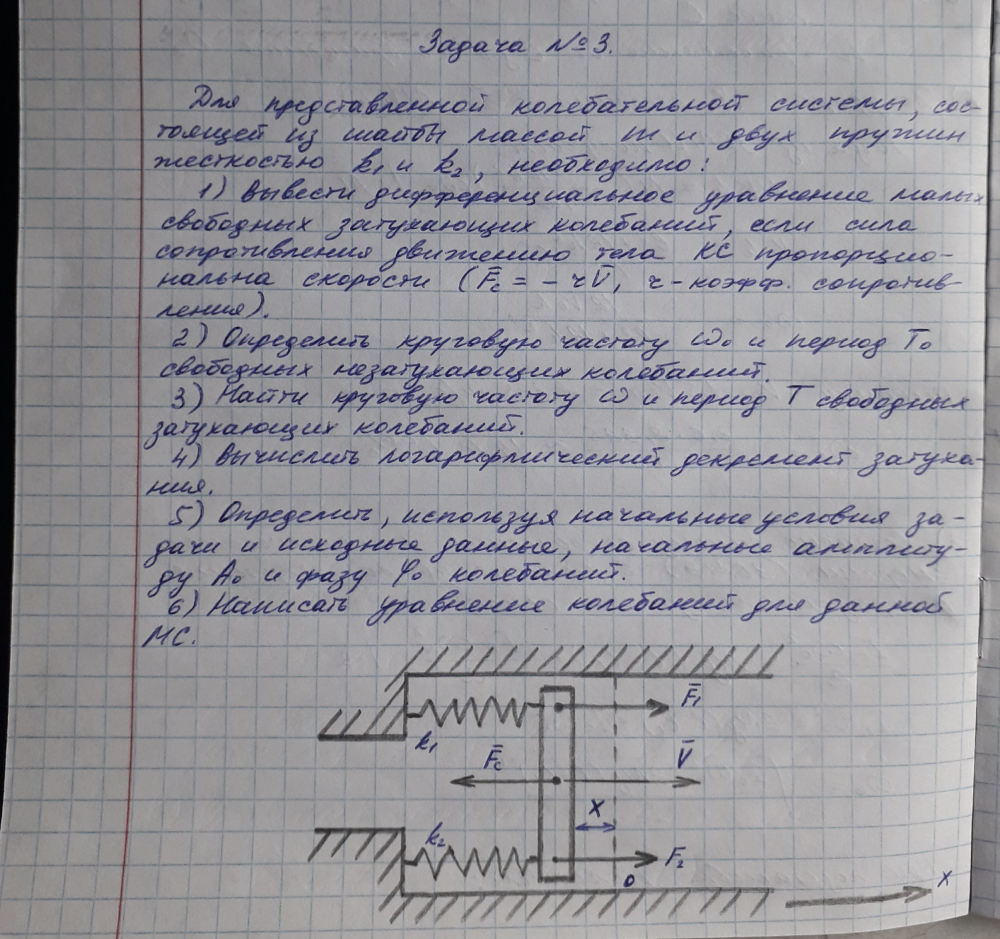 Задача №3.
Для представленной колебательной системы, сос-
тоящей из шайбы массой m и двух пружин
жесткостью k₁ и k₂, необходимо:
1) Вывести дифференциальное уравнение малых
свободных затухающих колебаний, если сила
сопротивления движению тела КС пропорцио-
нальна скорости (F̄c = - rV̄, r - коэфф. сопротив-
ления).
2) Определить круговую частоту ω₀ и период T₀
свободных незатухающих колебаний.
3) Найти круговую частоту ω и период T свободных
затухающих колебаний.
4) Вычислить логарифмический декремент затуха-
ния.
5) Определить, используя начальные условия за-
дачи и исходные данные, начальные амплиту-
ду A₀ и фазу φ₀ колебаний.
6) Написать уравнение колебаний для данной
МС.
F̄₁
k₁
F̄c
V̄
X
k₂
F₂
0
X